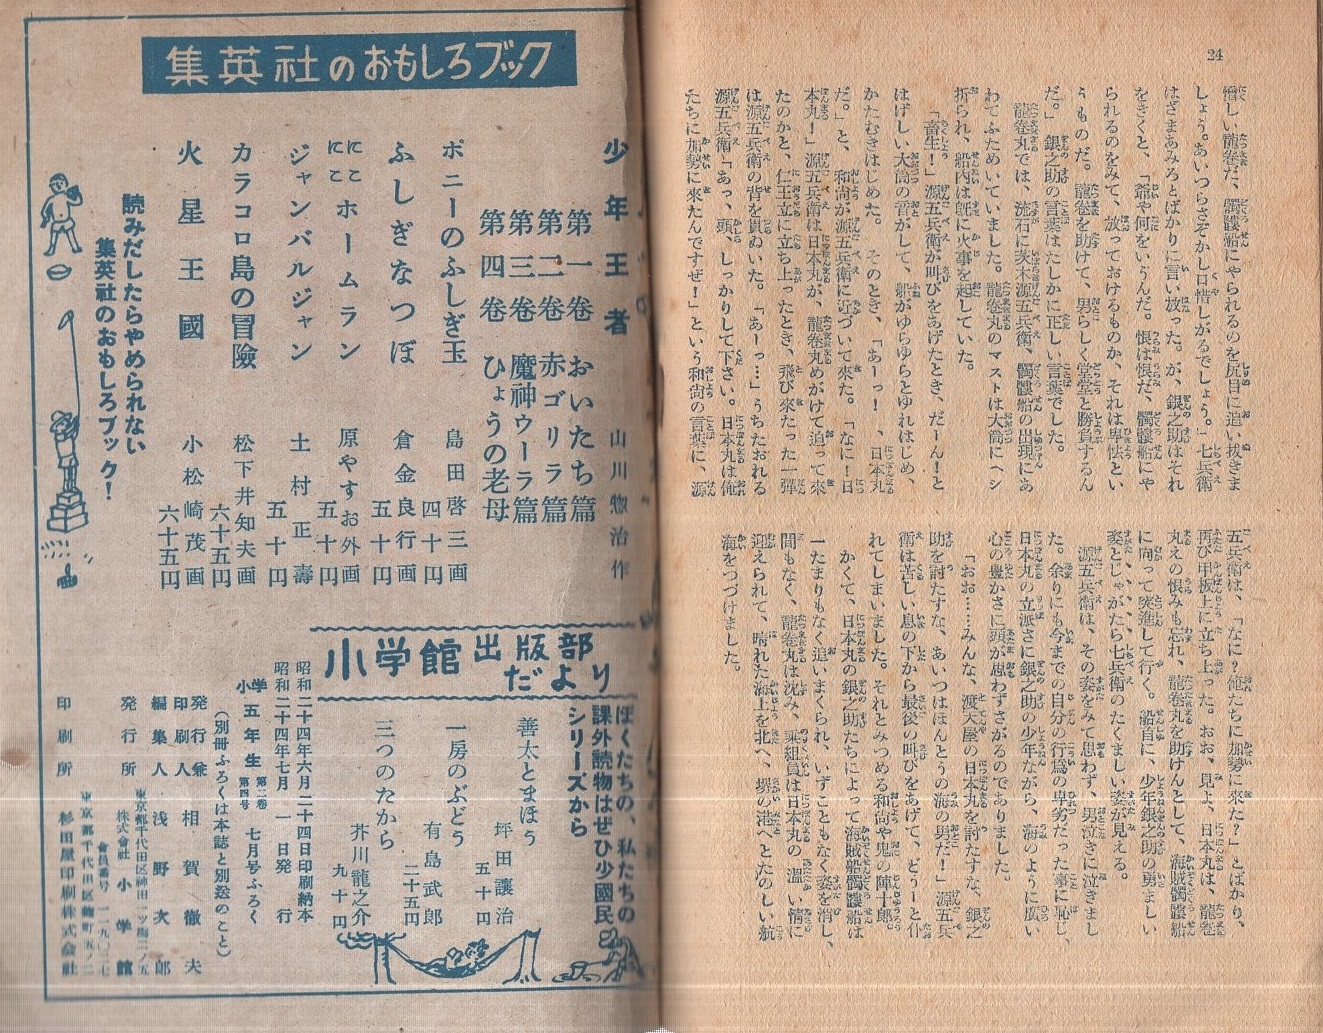 24
憎しい龍巻だ、髑髏船にやられるのを尻目に追い抜きま
しょう。あいつらさぞかし口惜しがるでしょう。」七兵衛
はざまあみろとばかりに言い放った。が、銀之助はそれ
をきくと、「爺や何をいうんだ。恨は恨だ、髑髏船にや
られるのをみて、放っておけるものか、それは卑怯とい
うものだ。龍巻を助けて、男らしく堂堂と勝負するん
だ。」銀之助の言葉はたしかに正しい言葉でした。
龍巻丸では、流石に茨木源五兵衛、髑髏船の出現にあ
わてふためいていました。龍巻丸のマストは大筒にヘシ
折られ、船内は既に火事を起していた。
「畜生！」源五兵衛が叫びをあげたとき、だーん！と
はげしい大筒の音がして、船がゆらゆらとゆれはじめ、
かたむきはじめた。そのとき、「あーっ！、日本丸
だ。」と、和尚が源五兵衛に近づいて來た。「なに！日
本丸！」源五兵衛は日本丸が、龍巻丸めがけて迫って來
たのかと、仁王立に立ち上ったとき、飛び來たった一彈
は源五兵衛の背を貫ぬいた。「あーっ…」うちたおれる
源五兵衛「あっ、頭、しっかりして下さい。日本丸は俺
たちに加勢に來たんですぜ！」という和尚の言葉に、源
五兵衛は、「なに？俺たちに加勢に來た？」とばかり、
再び甲板上に立ち上った。おお、見よ、日本丸は、龍巻
丸えの恨みも忘れ、龍巻丸を助けんとして、海賊髑髏船
に向って突進して行く。船首に、少年銀之助の勇ましい
姿と、じゃがたら七兵衛のたくましい姿が見える。
源五兵衛は、その姿をみて思わず、男泣きに泣きまし
た。余りにも今までの自分の行爲の卑劣だった事に恥じ、
日本丸の立派さに銀之助の少年ながら、海のように広い
心の豊かさに頭が思わずさがるのでありました。
「おお……みんな、渡天屋の日本丸を討たすな、銀之
助を討たすな、あいつはほんとうの海の男だ！」源五兵
衛は苦しい息の下から最後の叫びをあげて、どうーと仆
れてしまいました。それとみつめる和尚や鬼の陣十郎。
かくて、日本丸の銀之助たちによって海賊船髑髏船は
一たまりもなく追いまくられ、いずこともなく姿を消し、
間もなく、龍巻丸は沈み、乘組員は日本丸の温い情に
迎えられて、晴れた海上を北へ、堺の港へとたのしい航
海をつづけました。
集英社のおもしろブック
少年王者 山川惣治作
第一巻 おいたち篇
第二巻 赤ゴリラ篇
第三巻 魔神ウーラ篇
第四巻 ひょうの老母
ポニーのふしぎ玉 島田啓三画 四十円
ふしぎなつぼ 倉金良行画 五十円
にこにこホームラン 原やすお外画 五十円
ジャンバルジャン 土村正壽 五十円
カラコロ島の冒險 松下井知夫画 六十五円
火星王國 小松崎茂画 六十五円
読みだしたらやめられない
集英社のおもしろブック！
小学館出版部だより
ぼくたちの、私たちの
課外読物はぜひ少國民
シリーズから
善太とまほう 坪田譲治 五十円
一房のぶどう 有島武郎 二十五円
三つのたから 芥川龍之介 九十円
昭和二十四年六月二十四日印刷納本
昭和二十四年七月一日発行
小学五年生 第二巻第四号 七月号ふろく
（別册ふろくは本誌と別送のこと）
発行兼印刷人 相賀徹夫
編集人 浅野次郎
東京都千代田区神田一ツ橋二ノ五
発行所 株式會社 小学館
東京都千代田区麹町五ノ二
印刷所 杉田屋印刷株式会社